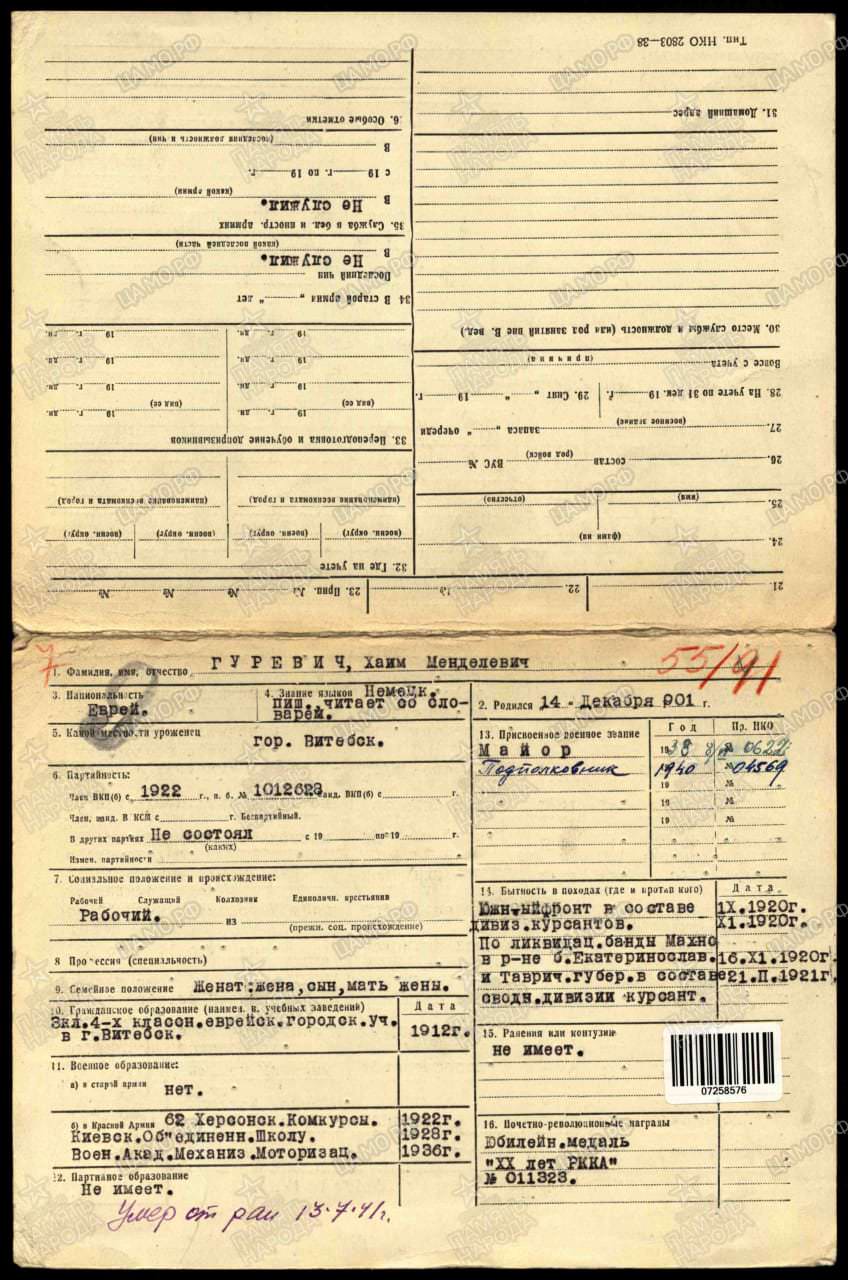 7
55/91
1. Фамилия, имя, отчество ГУРЕВИЧ, Хаим Менделевич
3. Национальность
Еврей.
4. Знание языков Немецк.
пиш., читает со сло-
варем.
2. Родился 14 - Декабря 901 г.
5. Какой местности уроженец
гор. Витебск.
6. Партийность:
Член ВКП(б) с 1922 г., п. б. № 1012628 канд. ВКП(б) с г.
Член, канд. ВЛКСМ с г. Беспартийный.
В других партиях Не состоял с 19 по 19 г.
(каких)
Измен. партийности
7. Социальное положение и происхождение:
Рабочий Служащий Колхозник Единоличн. крестьянин
Рабочий. из
(прежн. соц. происхождение)
8 Профессия (специальность)
9. Семейное положение Женат:жена,сын,мать жены.
10. Гражданское образование (наимен. в. учебных заведений) Дата
3кл.4-х классн.еврейск.городск.Уч.
в г.Витебск. 1912г.
11. Военное образование:
а) в старой армии нет.
б) в Красной Армии 62 Херсонск.Комкурсы. 1922г.
Киевск.Об"единенн.Школу. 1928г.
Воен.Акад.Механиз.Моторизац. 1936г.
12. Партийное образование
Не имеет.
Умер от ран 13.7.41г.
13. Присвоенное военное звание Год Пр. НКО
Майор 1938 № 0622
Подполковник 1940 № 04569
19 №
19 №
19 №
14. Бытность в походах (где и против кого) Дата
Южн-ый фронт в составе 1X.1920г.
дивиз.курсантов. X1.1920г.
По ликвидац.банды Махно
в р-не б.Екатеринослав. 16.X1.1920г.
и Таврич.губер.в составе 21.П.1921г.
сводн.дивизии курсант.
15. Ранения или контузии
не имеет.
07258576
16. Почетно-революционные награды
Юбилейн.медаль
"XX лет РККА"
№ 011323.
21.
22. 19
23. Прип. № № № №
24.
(фамилия)
25.
(имя) (отчество)
26. состав ВУС №
(род войск)
27. запаса „ “ очереди
(военное звание)
28. На учете по 31 дек. 19 г. 29. Снят „ “ 19 г.
Вовсе с учета
(причина)
30. Место службы и должность (или род занятий вне В. вед.)
31. Домашний адрес
Тип. НКО 2803—38
32. Где на учете
(воен. округ) (воен. округ) (воен. округ) (воен. округ)
(наименование военкомата и город) (наименование военкомата и город)
33. Переподготовка и обучение допризывников
(вид ее) 19 г. дн. (вид ее) 19 г. дн.
19 г. дн. 19 г. дн.
19 г. дн. 19 г. дн.
19 г. дн. 19 г. дн.
34 В старой армии „ “ лет
Последний чин
В Не служил.
(какой последней части)
35. Служба в бел. и иностр. армиях
В Не служил.
(какой армии)
с 19 г. по 19 г.
В
(последняя должность и чин)
36. Особые отметки
ПАМЯТЬ НАРОДА
ЦАМО.РФ